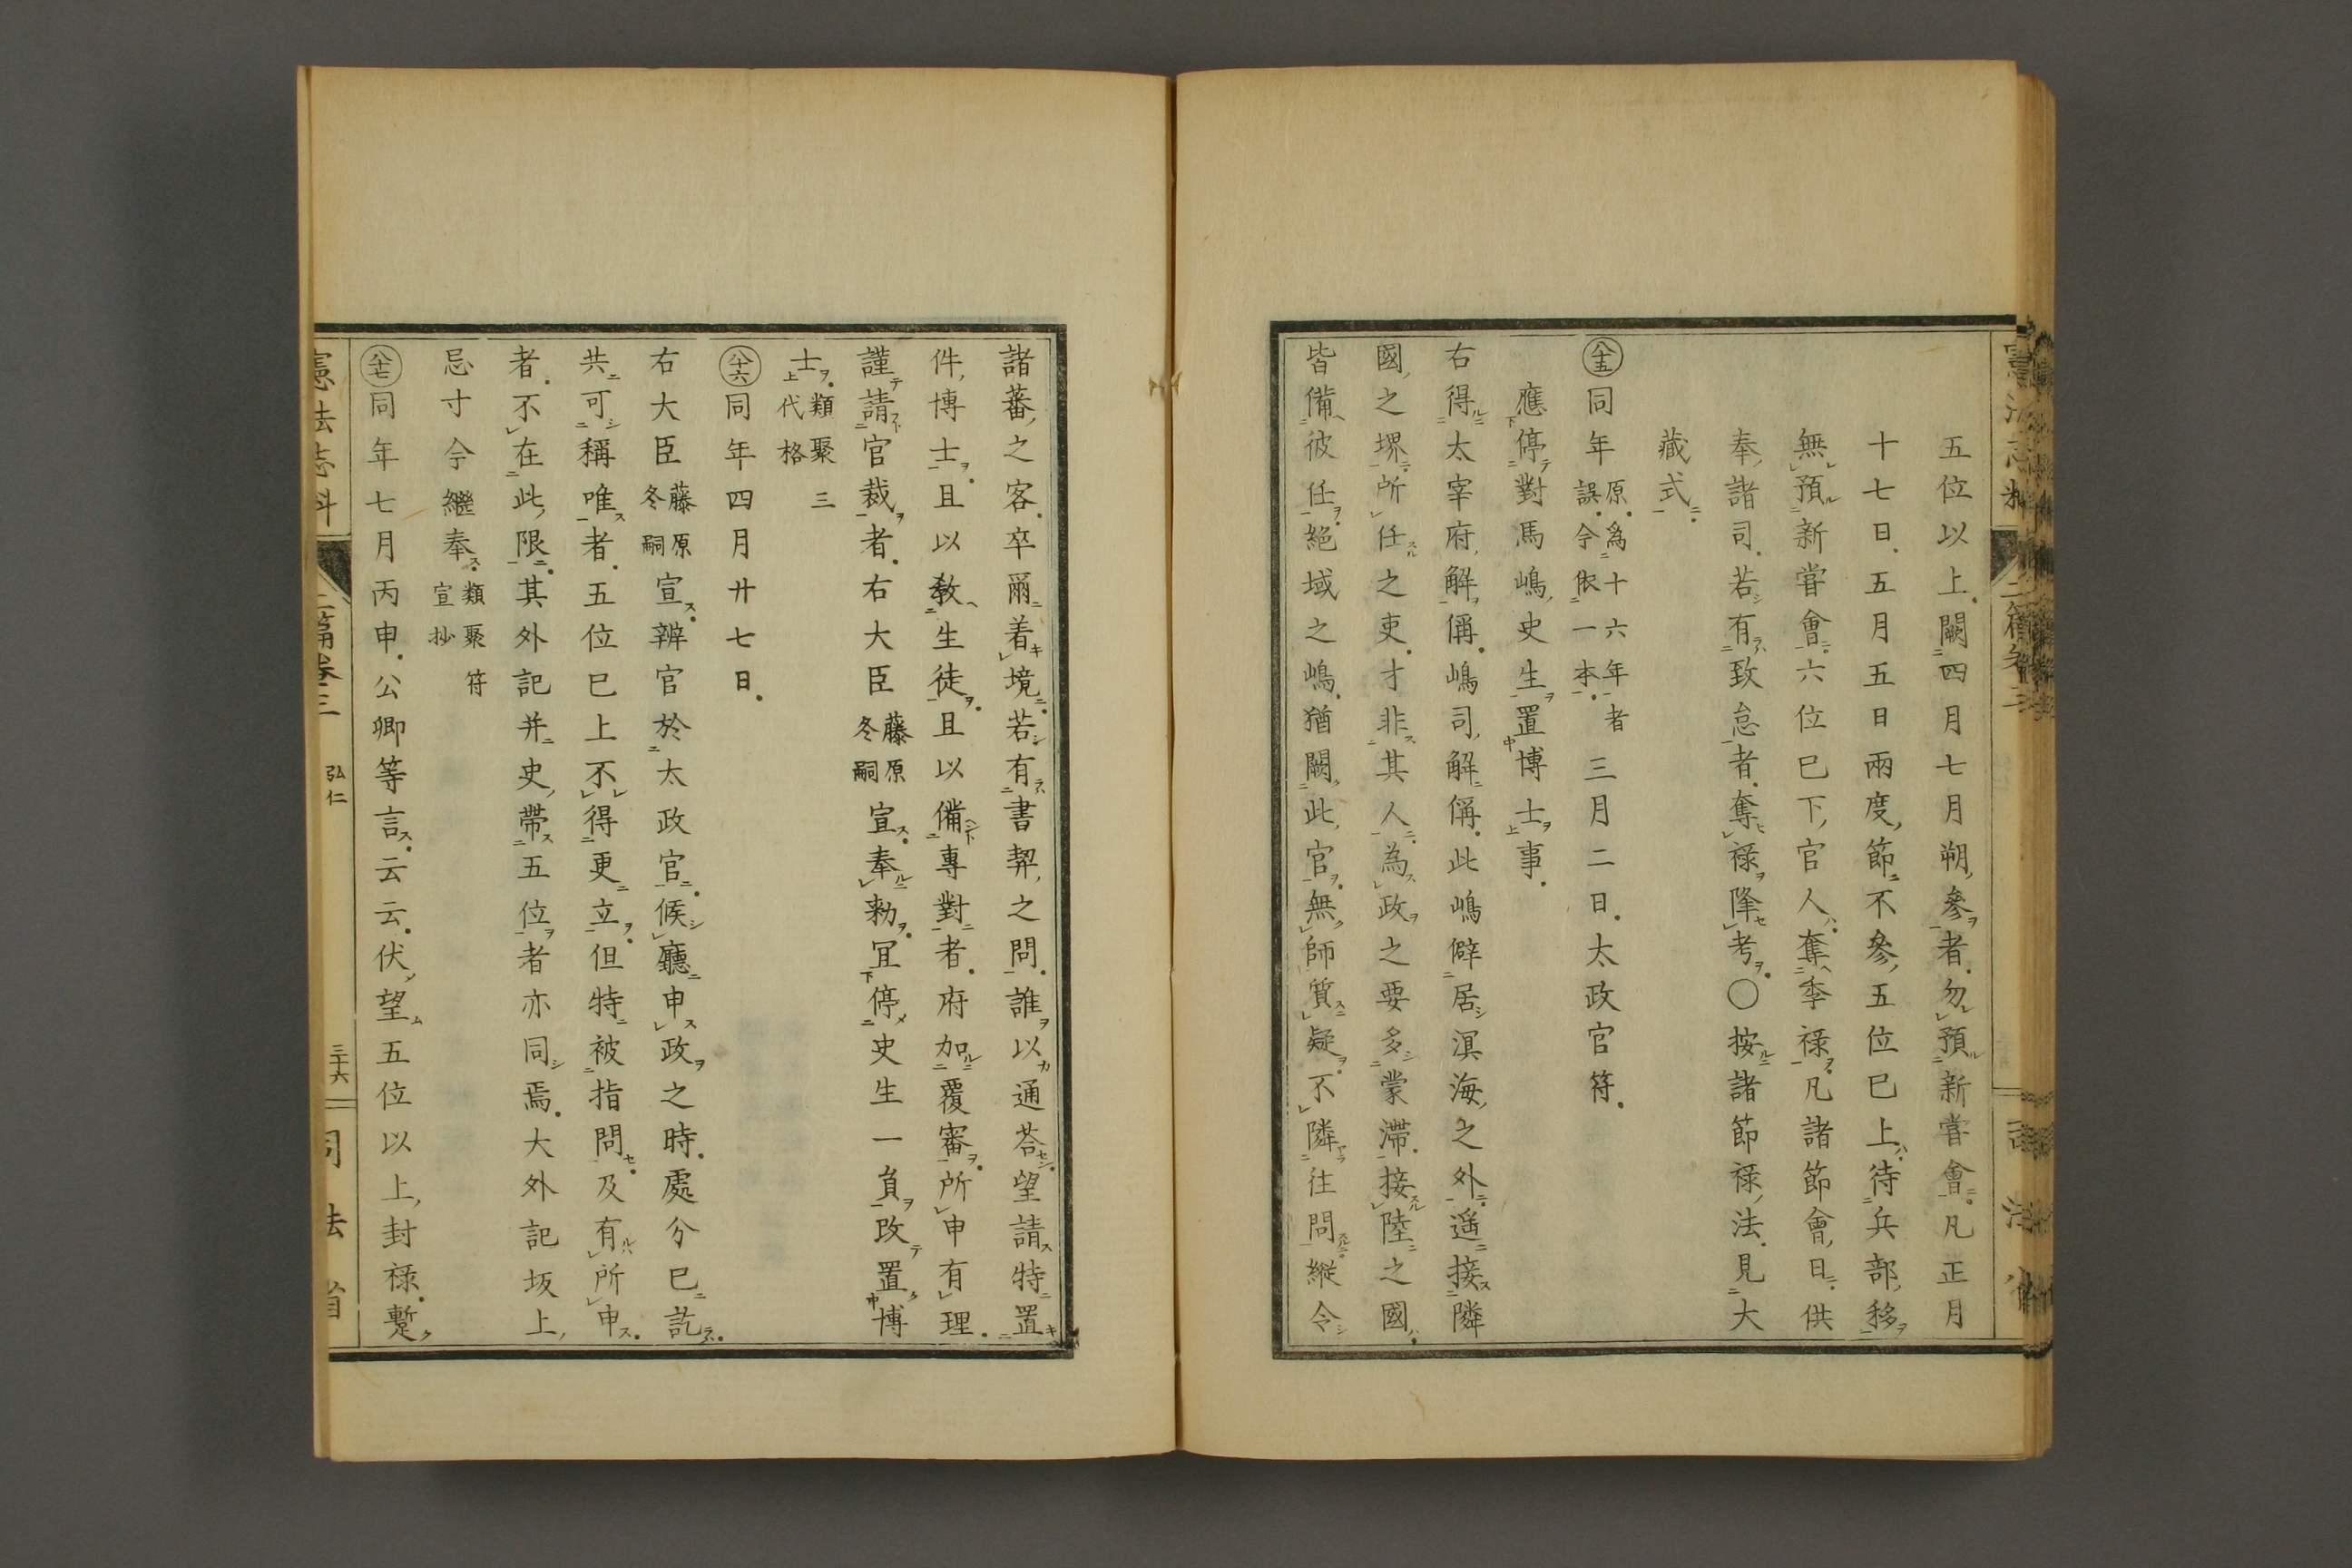 五位以上闕四月七月朔參者勿預新嘗會凡正月
十七日五月五日兩度節不參五位已上待兵部移
無預新嘗會六位已下官人奪季祿凡諸節會日供
奉諸司若有致怠者奪祿降考〇按諸節祿法見大
藏式
八十五 同年 原爲十六年者誤今依一本 三月二日太政官符
應停對馬嶋史生置博士事
右得太宰府解偁嶋司解偁此嶋僻居溟海之外遥接隣
國之堺所任之吏才非其人為政之要多蒙滯接陸之國
皆備彼任絕域之嶋猶闕此官無師質疑不隣往問縱令
諸蕃之客卒爾着境若有書契之問誰以通荅望請特置
件博士且以敎生徒且以備專對者府加覆審所申有理
謹請官裁者右大臣 藤原冬嗣 宣奉勅宜停史生一員改置博
士 類聚三代格
八十六 同年四月廿七日
右大臣 藤原冬嗣 宣辨官於太政官候廳申政之時處分已訖
共可稱唯者五位已上不得更立但特被指問及有所申
者不在此限其外記并史帶五位者亦同焉大外記坂上
忌寸今繼奉 類聚符宣抄
八十七 同年七月丙申公卿等言云云伏望五位以上封祿蹔
憲法志料
二篇卷三
弘仁
三十六
司法省